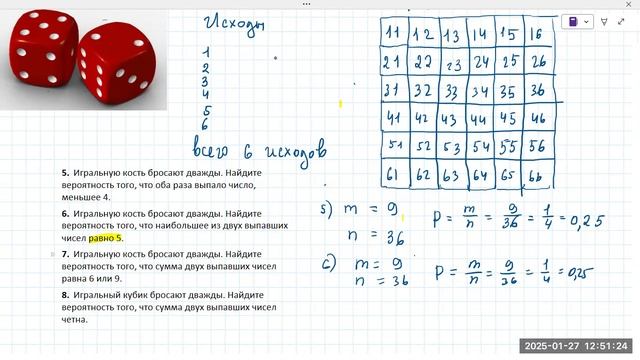 Исходы
1
2
3
4
5
6
всего 6 исходов
11 12 13 14 15 16
21 22 23 24 25 26
31 32 33 34 35 36
41 42 43 44 45 46
51 52 53 54 55 56
61 62 63 64 65 66
5. Игральную кость бросают дважды. Найдите
вероятность того, что оба раза выпало число,
меньшее 4.
6. Игральную кость бросают дважды. Найдите
вероятность того, что наибольшее из двух выпавших
чисел равно 5.
7. Игральную кость бросают дважды. Найдите
вероятность того, что сумма двух выпавших чисел
равна 6 или 9.
8. Игральный кубик бросают дважды. Найдите
вероятность того, что сумма двух выпавших чисел
четна.
5) m = 9
n = 36
P = m/n = 9/36 = 1/4 = 0,25
6) m = 9
n = 36
P = m/n = 9/36 = 1/4 = 0,25
2025-01-27 12:51:24